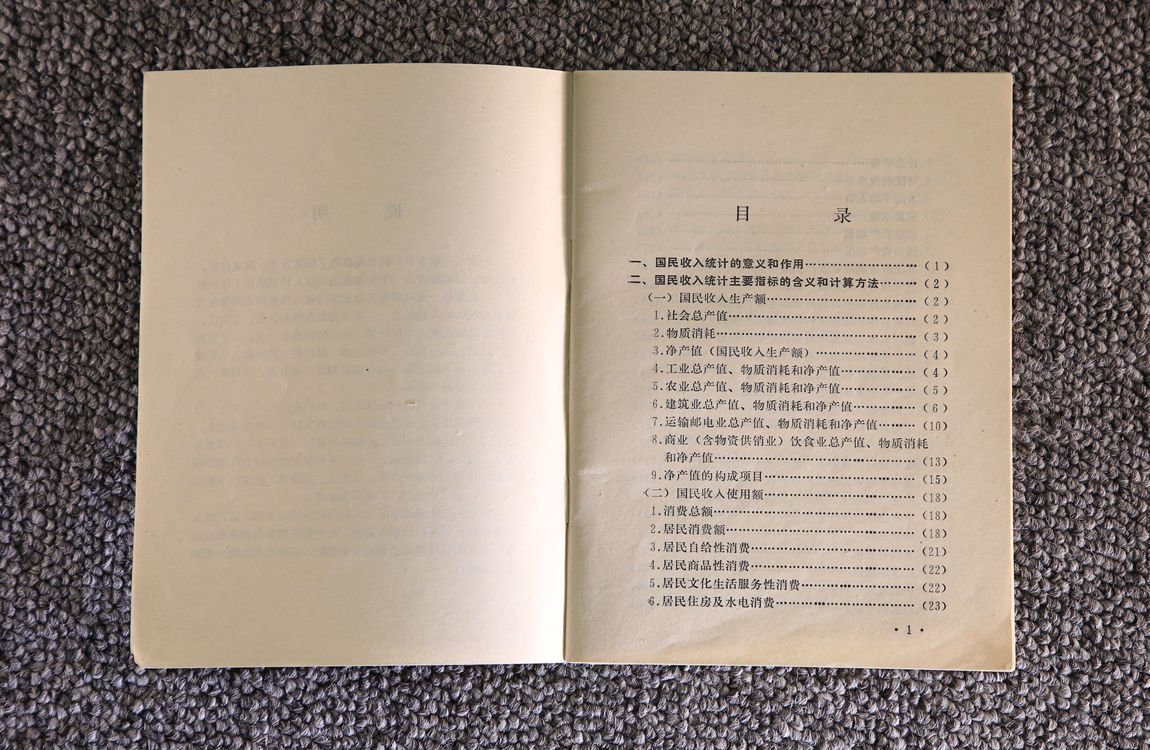 目 录
一、国民收入统计的意义和作用……………………（1）
二、国民收入统计主要指标的含义和计算方法………（2）
（一）国民收入生产额……………………（2）
1.社会总产值……………………（2）
2.物质消耗……………………（3）
3.净产值（国民收入生产额）……………………（4）
4.工业总产值、物质消耗和净产值……………（4）
5.农业总产值、物质消耗和净产值……………（5）
6.建筑业总产值、物质消耗和净产值…………（6）
7.运输邮电业总产值、物质消耗和净产值………（10）
8.商业（含物资供销业）饮食业总产值、物质消耗
和净产值……………………（13）
9.净产值的构成项目……………………（15）
（二）国民收入使用额……………………（18）
1.消费总额……………………（18）
2.居民消费额……………………（18）
3.居民自给性消费……………………（21）
4.居民商品性消费……………………（22）
5.居民文化生活服务性消费……………………（22）
6.居民住房及水电消费……………………（23）
·1·